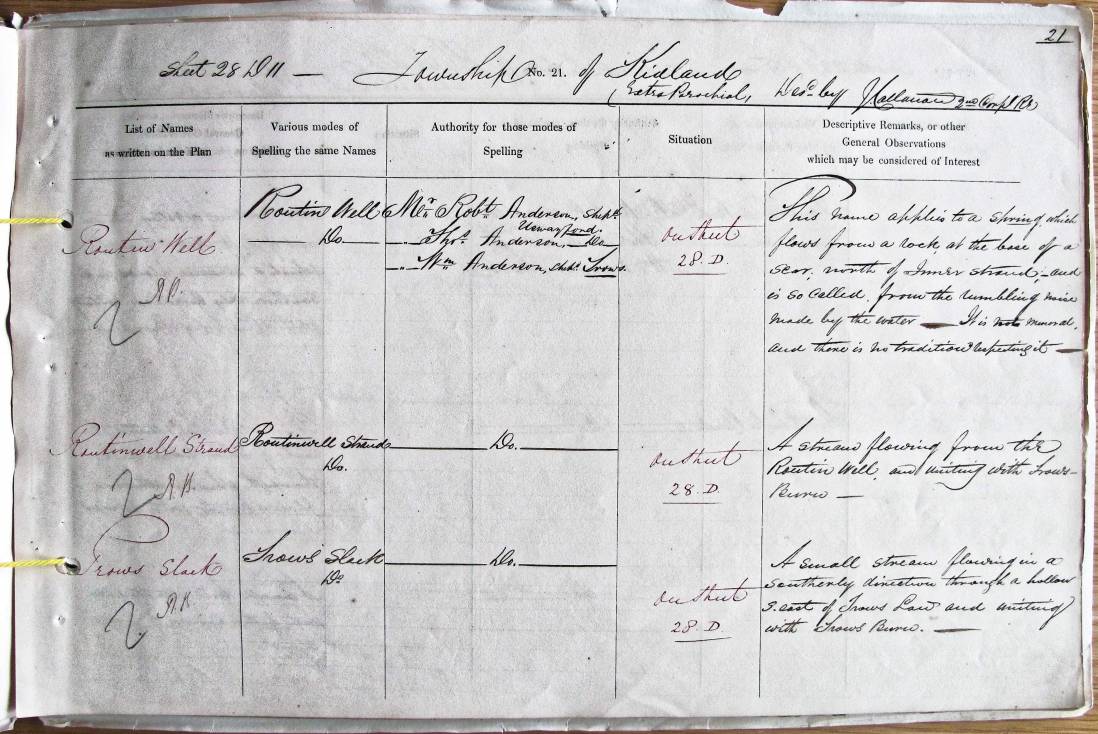 21
Sheet 28 D 11 — Township No. 21. of Kidland
(Extra Parochial) Desd by 2nd Corpl RE
List of Names
as written on the Plan
Various modes of
Spelling the same Names
Authority for those modes of
Spelling
Situation
Descriptive Remarks, or other
General Observations
which may be considered of Interest
Routin Well
Routin Well
Do.
Mr. Robt. Anderson, Shepd.
Uswayford.
" Thos. Anderson, Do
" Wm Anderson, Shepd. Trows.
on Sheet
28. D.
This name applies to a spring, which
flows from a rock at the base of a
scar, north of Inner strand, and
is so called, from the rumbling noise
made by the water — It is not mineral,
and there is no tradition respecting it —
Routinwell Strand
Routinwell Strand
Do.
Do.
on Sheet
28. D.
A stream flowing from the
Routin Well, and uniting with Trows
Burn —
Trows Slack
Trows Slack
Do
Do.
on Sheet
28. D
A small stream flowing in a
Southerly direction through a hollow
S. east of Trows Law and uniting
with Trows Burn. —